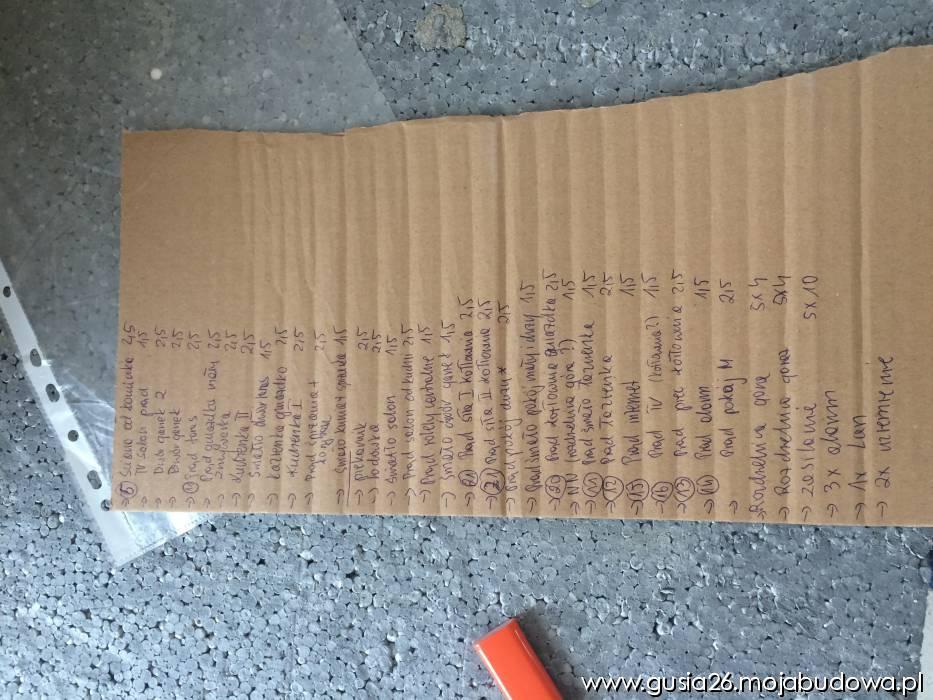 → ⑥ Ściana od kominka 2,5
→ TV salon prąd 1,5
→ Biuro ganek 2 2,5
→ Biuro ganek 2,5
→ Prąd taras 2,5
→ Prąd gniazdka mały 2,5
→ Zmywarka 2,5
→ Kuchenka II 2,5
→ Światło duży taras 1,5
→ Łazienka gniazdko 2,5
→ Kuchenka I 2,5
→ Prąd
→ światło kuchnia + 1,5
→ piekarnik 2,5
→ lodówka 2,5
→ światło salon 1,5
→ Prąd salon od kuchni 2,5
→ Prąd rolety centralne 1,5
→ światło dwór ganek 1,5
→ Prąd siła I kotłownia 2,5
→ 21 Prąd siła II kotłownia 2,5
→ Prąd pokój duży x 2,5
→ Prąd światło pokój mały i duży 1,5
→ 20 Prąd kotłownia gniazdka 2,5
→ NN (rozdzielnia góra?) 1,5
→ 11 Prąd światło łazienka 1,5
→ 12 Prąd łazienka 2,5
→ 15 Prąd internet 1,5
→ 16 Prąd TV (kotłownia?) 1,5
→ 13 Prąd piec kotłownia 2,5
→ 14 Prąd alarm 1,5
→ Prąd pokój M 2,5
→ Rozdzielnia góra 5x4
→ Rozdzielnia góra 5x4
→ zasilanie 5x10
→ 3x alarm
→ 1x Lan
→ 2x internet
www.gusia26.mojabudowa.pl